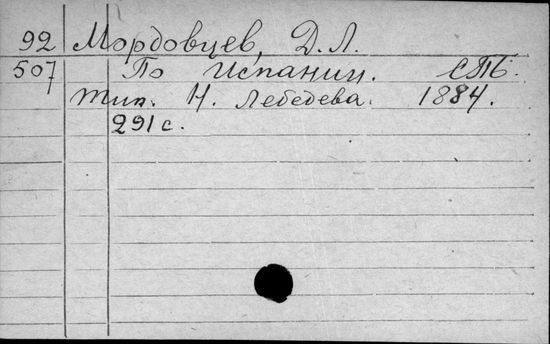 92 Мордовцев, Д.Л.
507 По Испании. СПб.
тип. Н. Лебедева. 1884.
291 с.